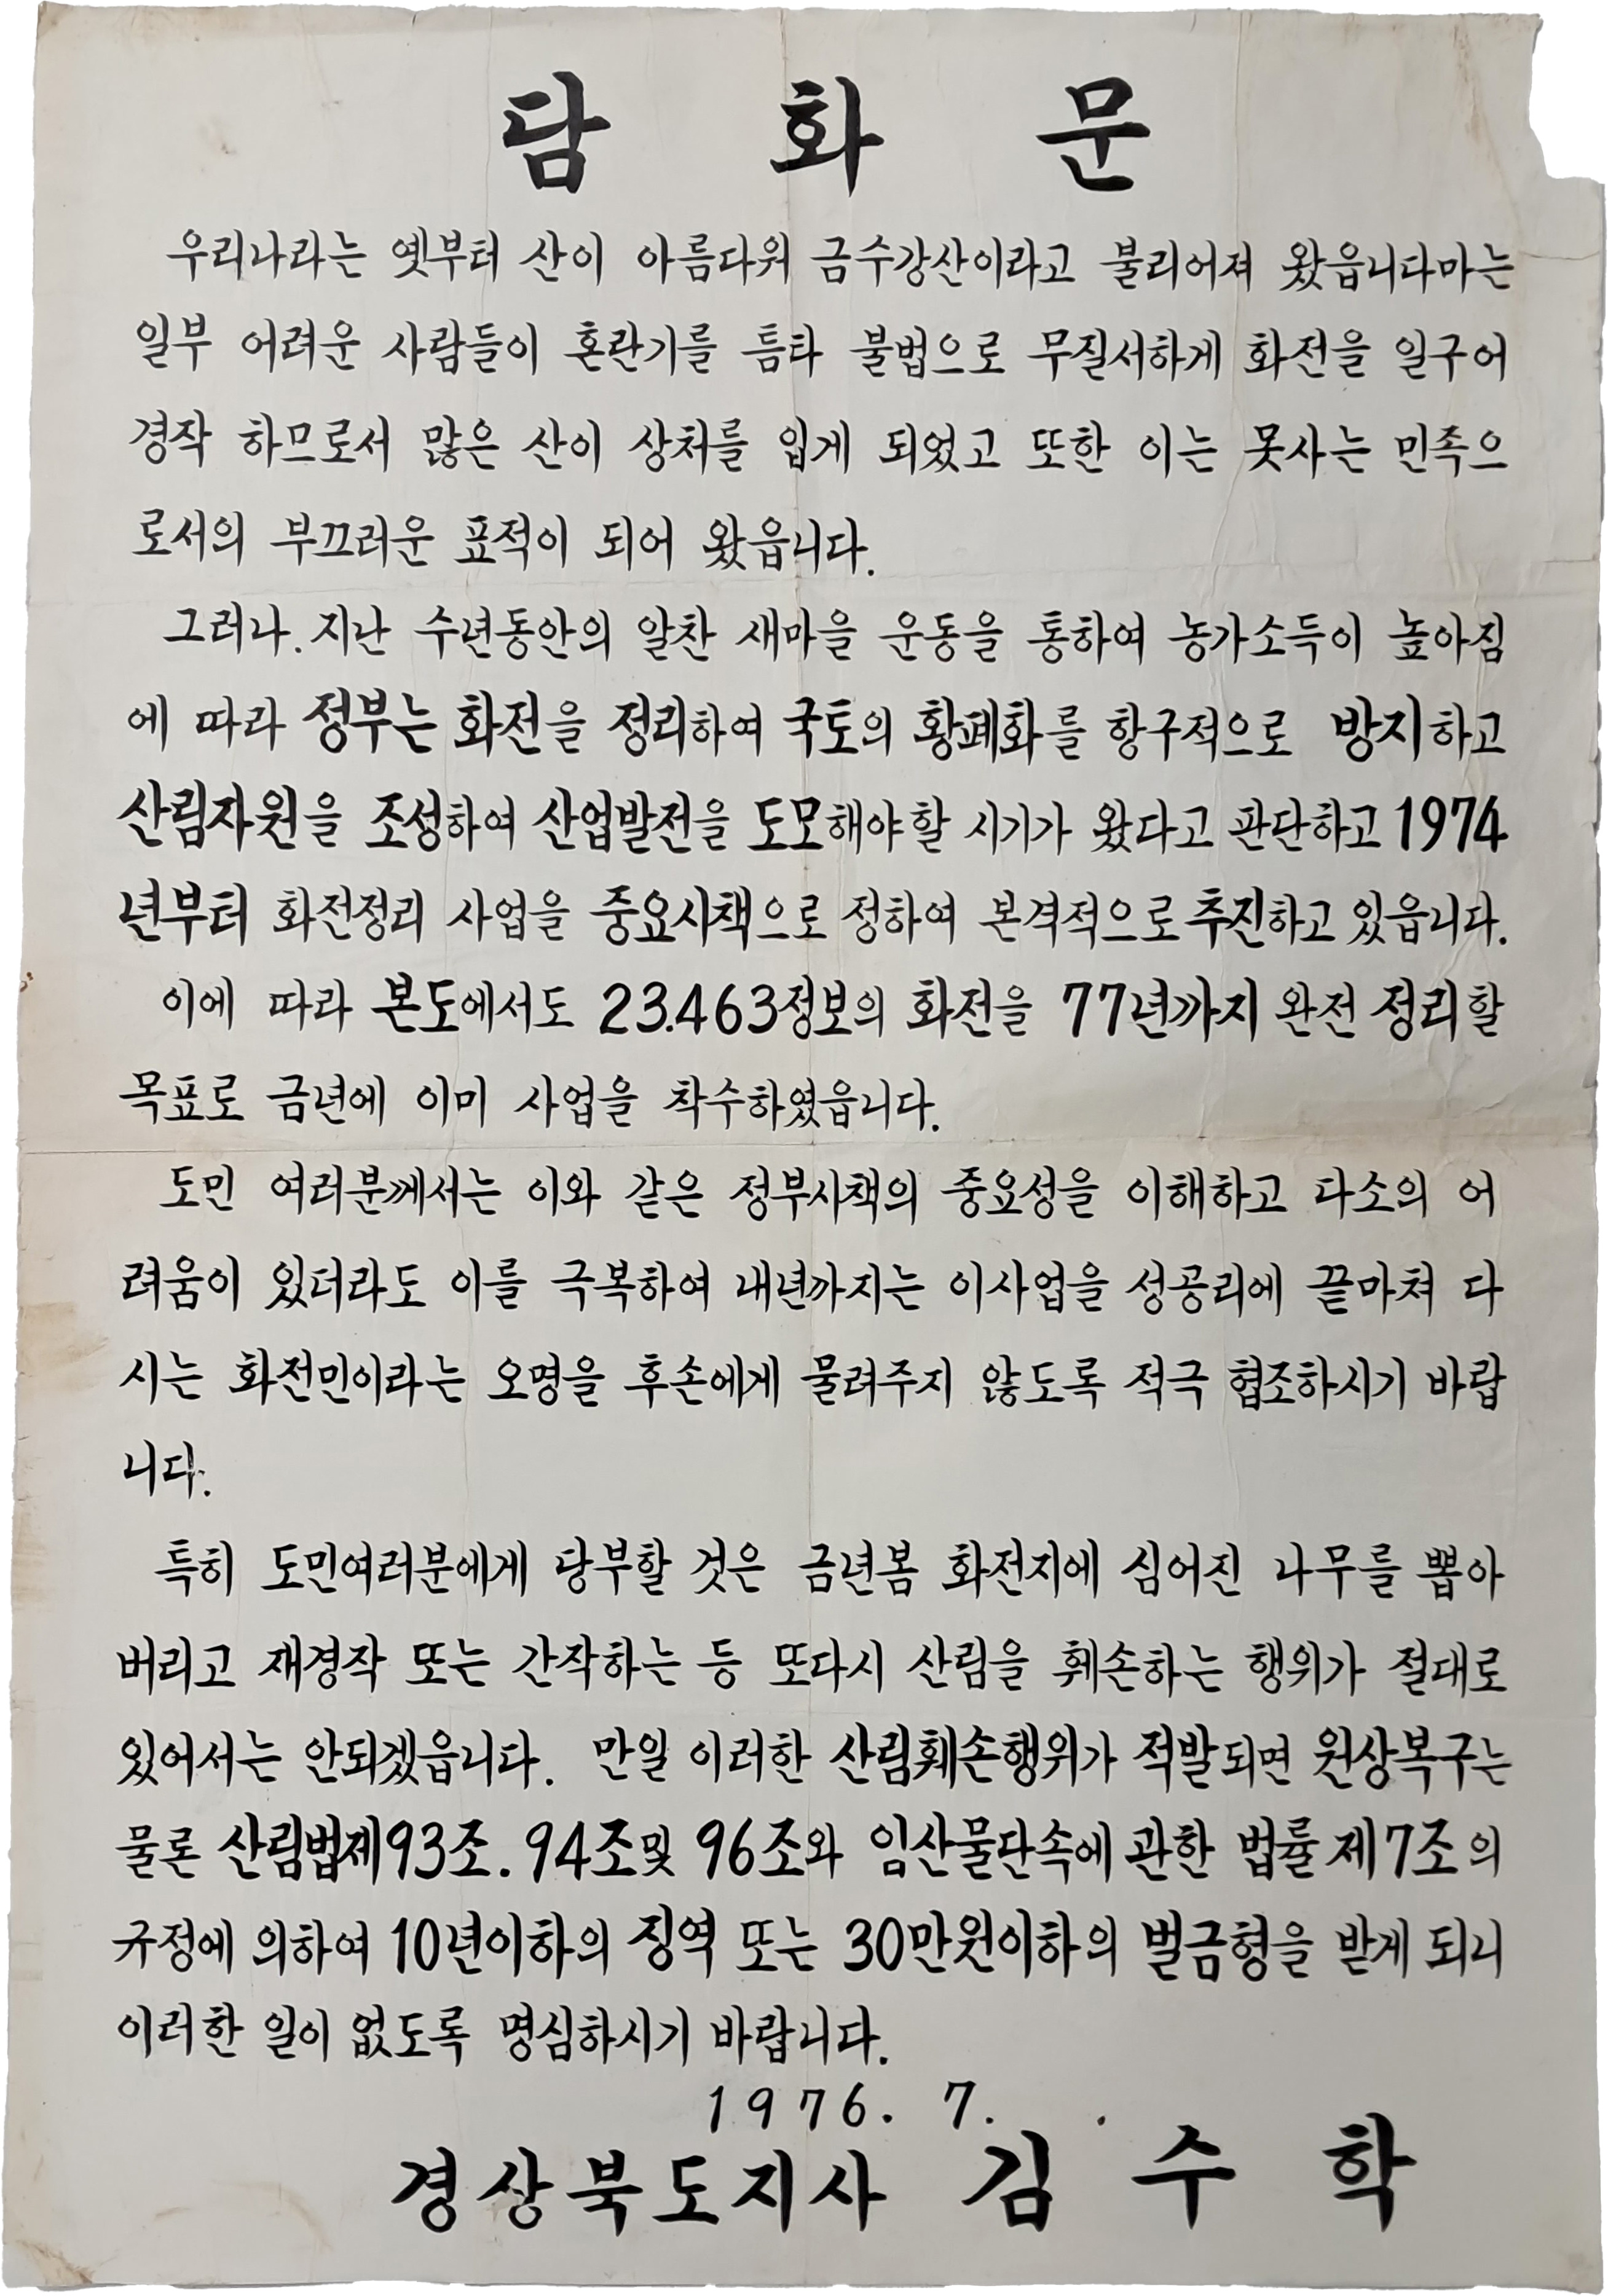 담 화 문
우리나라는 옛부터 산이 아름다워 금수강산이라고 불리어져 왔읍니다마는
일부 어려운 사람들이 혼란기를 틈타 불법으로 무질서하게 화전을 일구어
경작 하므로서 많은 산이 상처를 입게 되었고 또한 이는 못사는 민족으
로서의 부끄러운 표적이 되어 왔읍니다.
그러나. 지난 수년동안의 알찬 새마을 운동을 통하여 농가소득이 높아짐
에 따라 정부는 화전을 정리하여 국토의 황폐화를 항구적으로 방지하고
산림자원을 조성하여 산업발전을 도모해야할 시기가 왔다고 판단하고 1974
년부터 화전정리 사업을 중요시책으로 정하여 본격적으로 추진하고 있읍니다.
이에 따라 본도에서도 23.463정보의 화전을 77년까지 완전 정리할
목표로 금년에 이미 사업을 착수하였읍니다.
도민 여러분께서는 이와 같은 정부시책의 중요성을 이해하고 다소의 어
려움이 있더라도 이를 극복하여 내년까지는 이사업을 성공리에 끝마쳐 다
시는 화전민이라는 오명을 후손에게 물려주지 않도록 적극 협조하시기 바랍
니다.
특히 도민여러분에게 당부할 것은 금년봄 화전지에 심어진 나무를 뽑아
버리고 재경작 또는 간작하는 등 또다시 산림을 훼손하는 행위가 절대로
있어서는 안되겠읍니다. 만일 이러한 산림훼손행위가 적발되면 원상복구는
물론 산림법제93조. 94조및 96조와 임산물단속에 관한 법률 제7조의
규정에 의하여 10년이하의 징역 또는 30만원이하의 벌금형을 받게 되니
이러한 일이 없도록 명심하시기 바랍니다.
1976. 7. .
경상북도지사 김 수 학